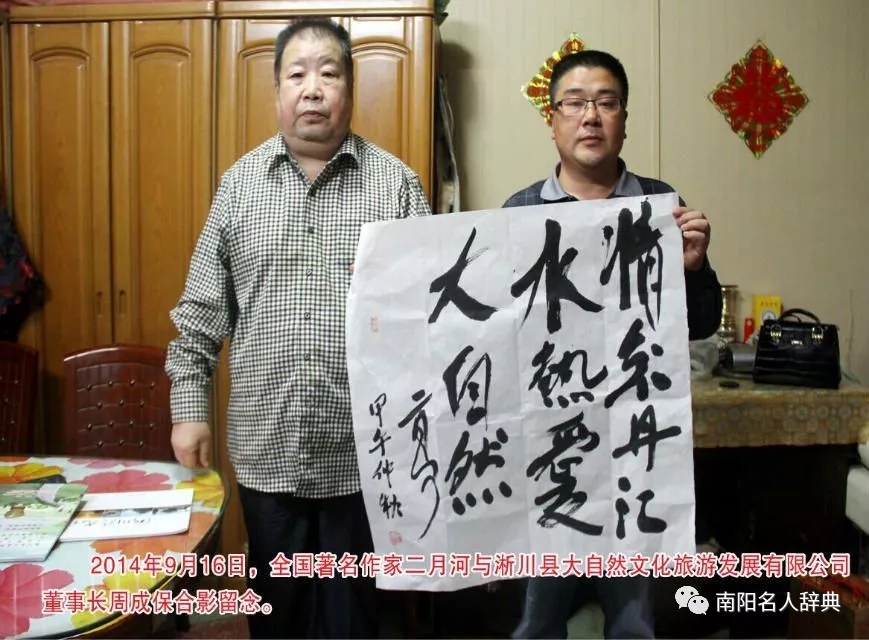 情系丹江
水热爱
大自然
二月河
甲午仲秋
2014年9月16日，全国著名作家二月河与淅川县大自然文化旅游发展有限公司
董事长周成保合影留念。
南阳名人辞典